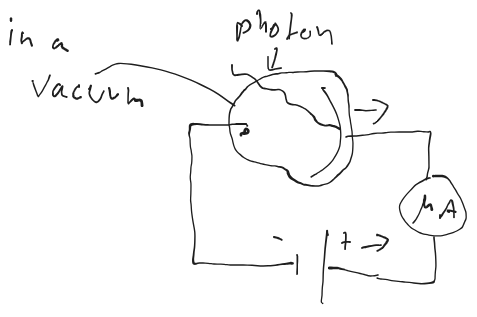 in a
vacuum
photon
μA
- +